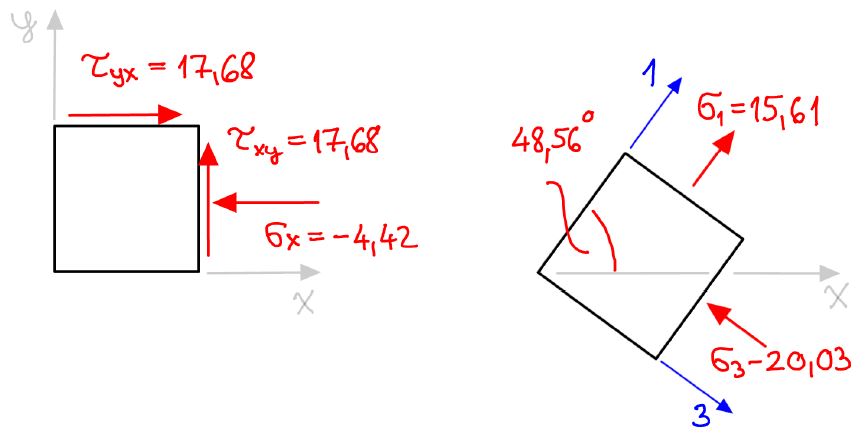 y
τyx = 17,68
τxy = 17,68
σx = -4,42
x
1
σ1 = 15,61
48,56°
x
σ3 -20,03
3